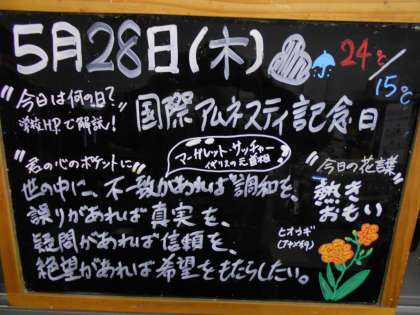 5月28日(木) 24℃/15℃
"今日は何の日?"
学校HPで解説!
国際アムネスティ記念日
"君の心のポケットに"
マーガレット・サッチャー
イギリスの元首相
世の中に、不一致があれば調和を、
誤りがあれば真実を、
疑問があれば信頼を、
絶望があれば希望をもたらしたい。
"今日の花言葉"
熱き
おもい
ヒオウギ
(アヤメ科)